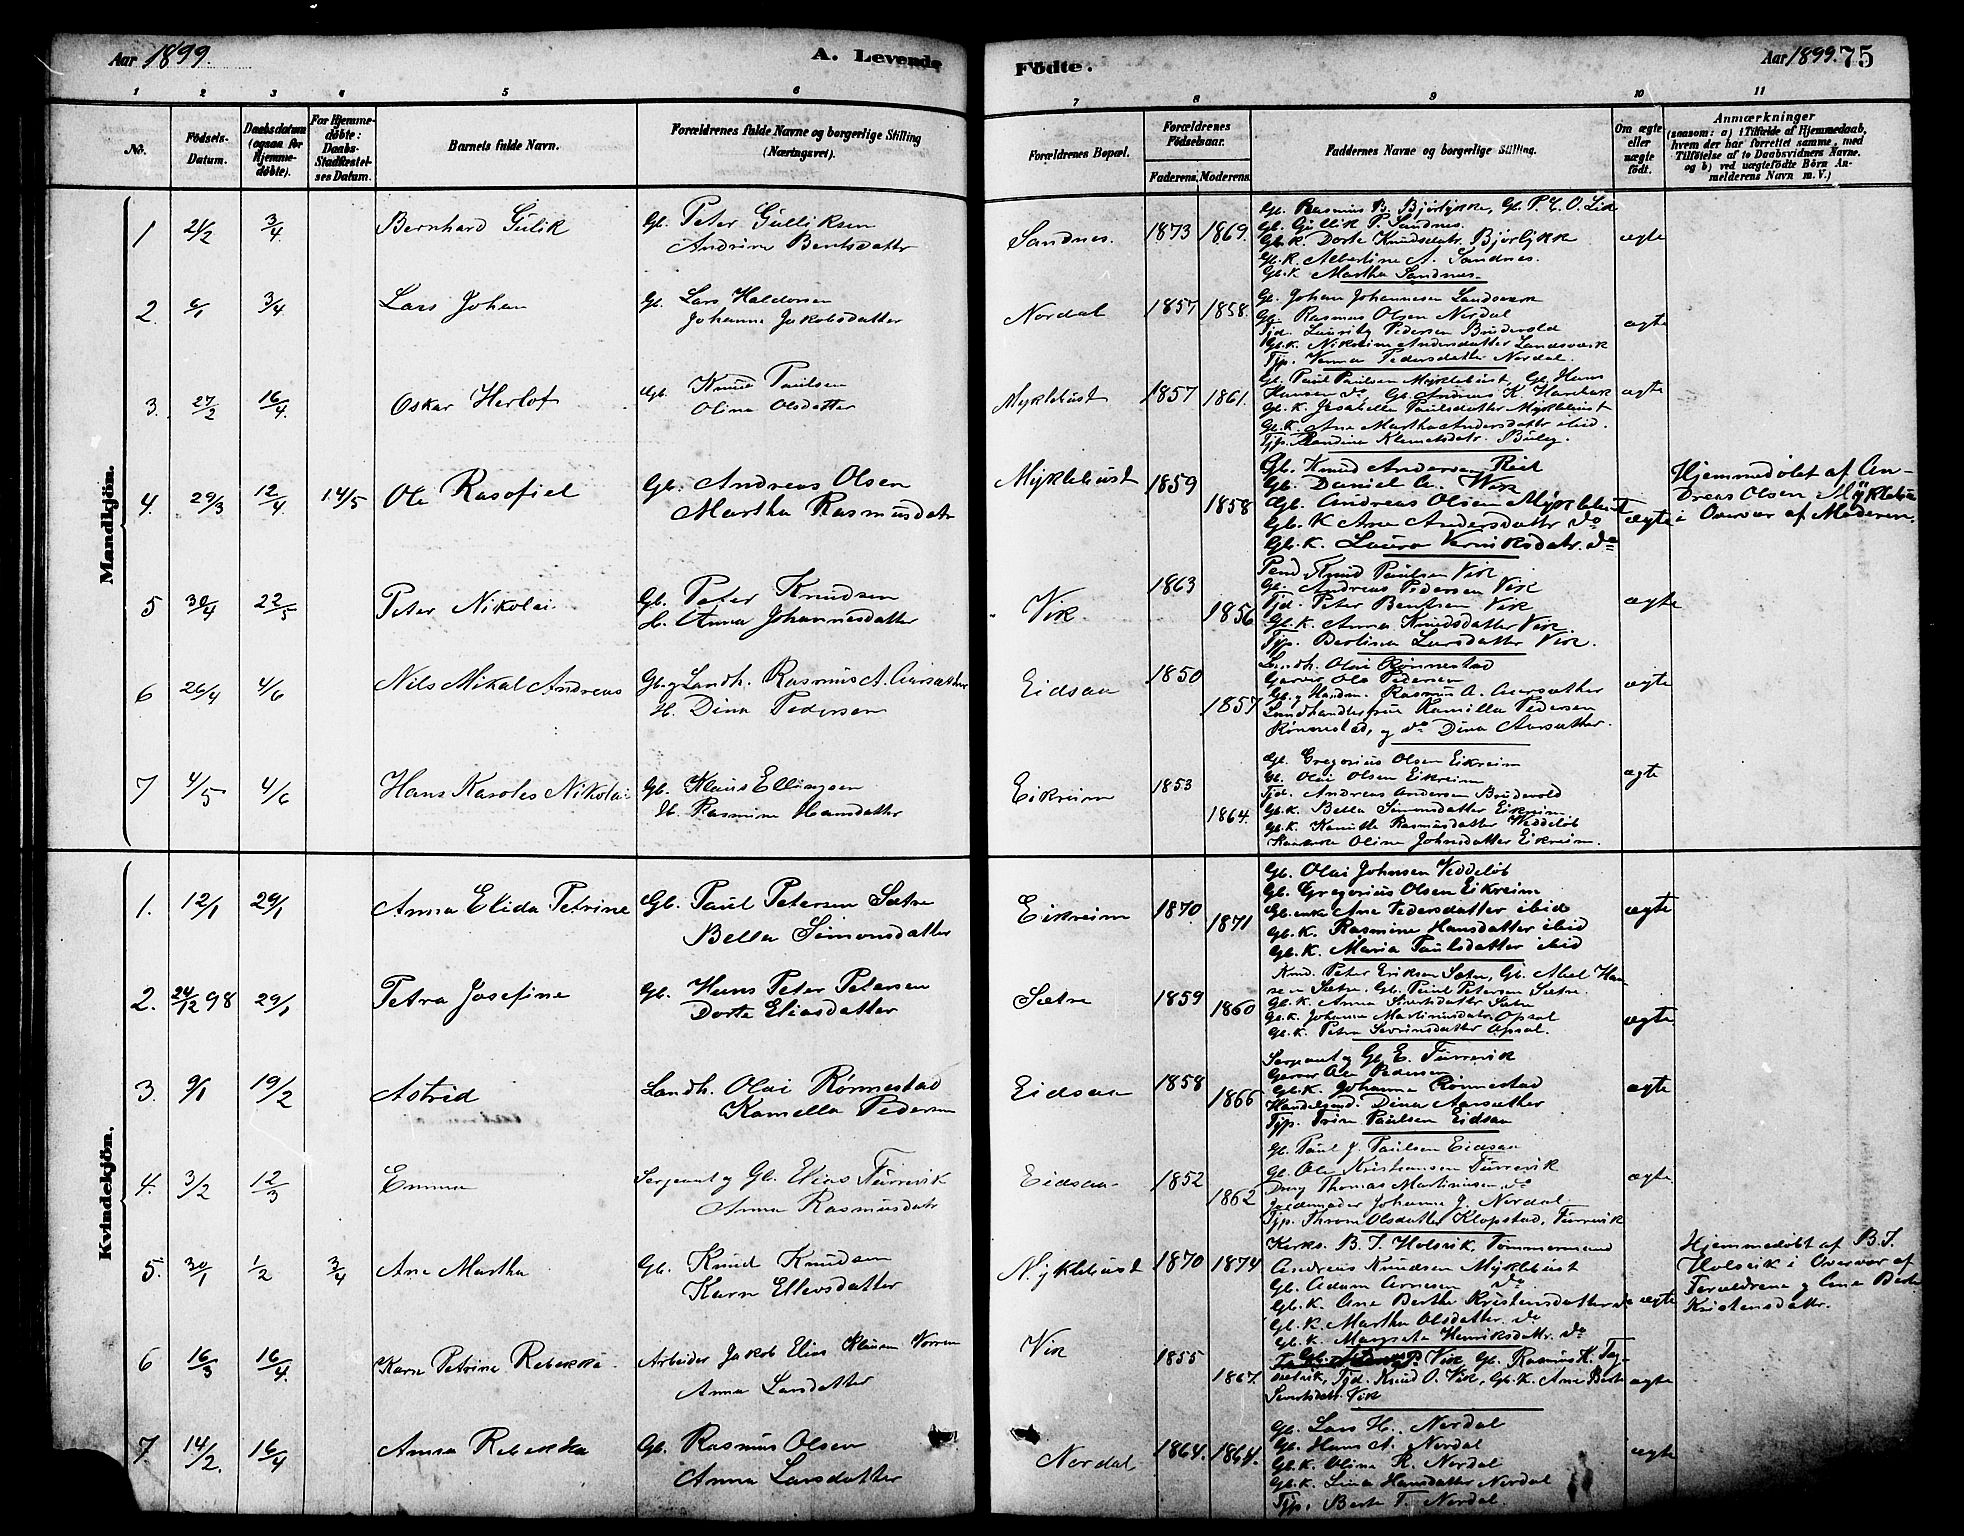 Aar 1899.
A. Levende Födte.
Aar 1899. 75
1 2 3 4 5 6 7 8 9 10 11
No.
Födsels-Datum.
Daabsdatum (ogsaa for Hjemmedøbte).
For Hjemmedøbte: Daabs-Stadfæstelses Datum.
Barnets fulde Navn.
Forældrenes fulde Navne og borgerlige Stilling (Næringsvei).
Forældrenes Bopæl.
Forældrenes Födselsaar.
Faderens. Moderens.
Faddernes Navne og borgerlige Stilling.
Om ægte eller uægte født.
Anmærkninger
(saasom: a) i Tilfælde af Hjemmedaab,
hvem der har forrettet samme, med
Tilføielse af to Daabsvidners Navne.
og b) ved uægtefödte Börn An-
melderens Navn m. V.)
Mandkjön.
1 21/2 3/4 Bernhard Gulik
Gb. Peter Gulliksen
Andrine Bentsdatter
Sandnes. 1873 1869.
Gb. Rasmus B. Bjørlykke, Gb. P. E. O. Lid
Gb. Gullik P. Sandnes.
Gb.k. Dorte Knudsdatr. Bjørlykke
Gb.K. Albertine A. Sandnes.
Gb.K. Martha Sandnes.
ægte
2. 6/1 3/4 Lars Johan
Gb. Lars Haldorsen
Johanne Jakobsdatter
Nordal 1857 1858.
Gb. Johan Johannesen Landsværk
Gb. Rasmus Olsen Nordal
Tjd. Lauritz Pedersen Brudevold
Gb.k. Nikoline Andersdatter Landsværk
Tjp. Pedersdatter Nordal.
ægte
3. 27/2 16/4 Oskar Herlof
Gb. Knud Paulsen
Olina Olsdatter
Myklebust 1857 1861.
Gb. Paul Paulsen Myklebust, Gb. Hans
Hansen do, Gb. Andreas K.
Gb.K. Jesabella Paulsdatter Myklebust
Gb.K. Ane Martha Andersdattr ibid.
Tjp. Randina Klemetsdatr.
ægte
4. 29/3 12/4 14/5 Ole Rasofiel
Gb. Andreas Olsen
Martha Rasmusdatr
Myklebust 1859 1858
Gb. Knud Andersen Reit
Gb. Daniel A. Vik
Gb. Andreas Olsen Myklebust
Gb.K Ane Andersdattr do
Gb.K. Laura datr. do
ægte
Hjemmedøbt af An-
dreas Olsen Myklebust
i Overvær af Moderen.
5 30/4 22/5 Peter Nikolai
Gb. Peter Knudsen
H. Anna Johannesdatter
Vik 1863 1856
Knud Paulsen Vik
Gb. Andreas Pedersen Vik
Tjd. Peter Bentsen Vik
Gb.K. Anna Knudsdatter Vik
Tjp. Berlina Larsdatter Vik.
ægte
6 26/4 4/6 Nils Mikal Andreas
Gb. og Landh. Rasmus A. Aarsæther
H. Dina Pedersen
Eidsaa 1850 1857
Landh. Olai Rønnestad
Garver Ole Pedersen
Gb. og Handm. Rasmus A. Aarsæther
Landhandlerfrue Kamilla Pedersen
Rønnestad, og do Dina Aarsæther.
ægte
7 4/5 4/6 Hans Karoles Nikolai
Gb. Klaus Ellingsen
H. Rasmine Hansdatter
Eikreim 1853 1864.
Gb. Gregorius Olsen Eikreim
Gb. Olai Olsen Eikreim
Tjd. Andreas Andersen Brudevold
Gb.K. Bella Simonsdatter Eikreim
Gb.K. Rasmusdatter Veddeløb
Oline Johnsdatter Eikreim.
ægte
Kvindekjön.
1. 12/1 29/1 Anna Elida Petrine
Gb. Paul Petersen Sætre
Bella Simonsdatter
Eikreim 1870. 1871
Gb. Olai Johnsen Veddeløb
Gb. Gregorius Olsen Eikreim
Gb.enke Ane Pedersdatter ibid
Gb.K. Rasmine Hansdatter ibid
Gb.K. Maria Paulsdatter ibid
ægte
2. 24/12 98 29/1 Petra Josefine
Gb. Hans Peter Petersen
Dorte Eliasdatter
Sætre 1859 1860
Peter Eriksen Sætre, Gb. Abel Han
sen Sætre. Gb. Paul Petersen Sætre
Gb.K. Anna Sivertsdattr Sætre
Gb.K. Johanna Martinusdatr Opsal
Gb.K. Petra Sevrinsdatter Opsal.
ægte
3. 9/1 19/2 Astrid
Landh. Olai Rønnestad
Kamella Pedersen
Eidsaa 1858 1866
Sergeant og Gb. E. Furrevik
Garver Ole Pedersen
Gb.K. Johanna Rønnestad
Dina Aarsæther
Tjp. Trine Paulsen Eidsaa
ægte
4. 3/2 12/3 Emma
Sergeant og Gb. Elias Furrevik
Anna Rasmusdatr
Eidsaa 1852 1862
Gb. Paul J. Paulsen Eidsaa
Gb. Ole Kristiansen Furrevik
Dreng Thomas Martinusen do
Jordemoder Johanna J. Nordal
Tjp. Olsdatter Klopstad, Furrevik
ægte
5. 30/1 1/2 3/4 Ane Martha
Gb. Knud Knudsen
Karn Ellevsdatter
Myklebust 1870 1874
Kirks. B. T. Holsvik, Tømmermand
Andreas Knudsen Myklebust
Gb. Adam Arnesen do
Gb.K. Ane Berthe Kristensdatter do
Gb.K. Martha Olsdatter. do
Gb.K. Margrete Henriksdattr. do
ægte
Hjemmedøbt af B. T.
Holsvik i Overvær af
Forældrene og Ane Berte
Kristensdattr.
6 16/3 16/4. Karn Petrine Rebekka.
Arbeider Jakob Elias Klausen Vorren
Anna Larsdatter
Vik 1855 1867.
P. Vik, Gb. Rasmus K.
Tjd. Knud O. Vik, Gb.K. Ane Berte
Sivertsdatr. Vik
ægte
7. 14/2. 16/4 Anna Rebekka
Gb. Rasmus Olsen
Anna Larsdatter
Nordal 1864. 1864.
Gb. Lars H. Nordal
Gb. Hans A. Nordal
Gb.K. Olina R. Nordal
Gb.K. Lina Hansdatter Nordal
Tjp. Berte T. Nordal.
ægte